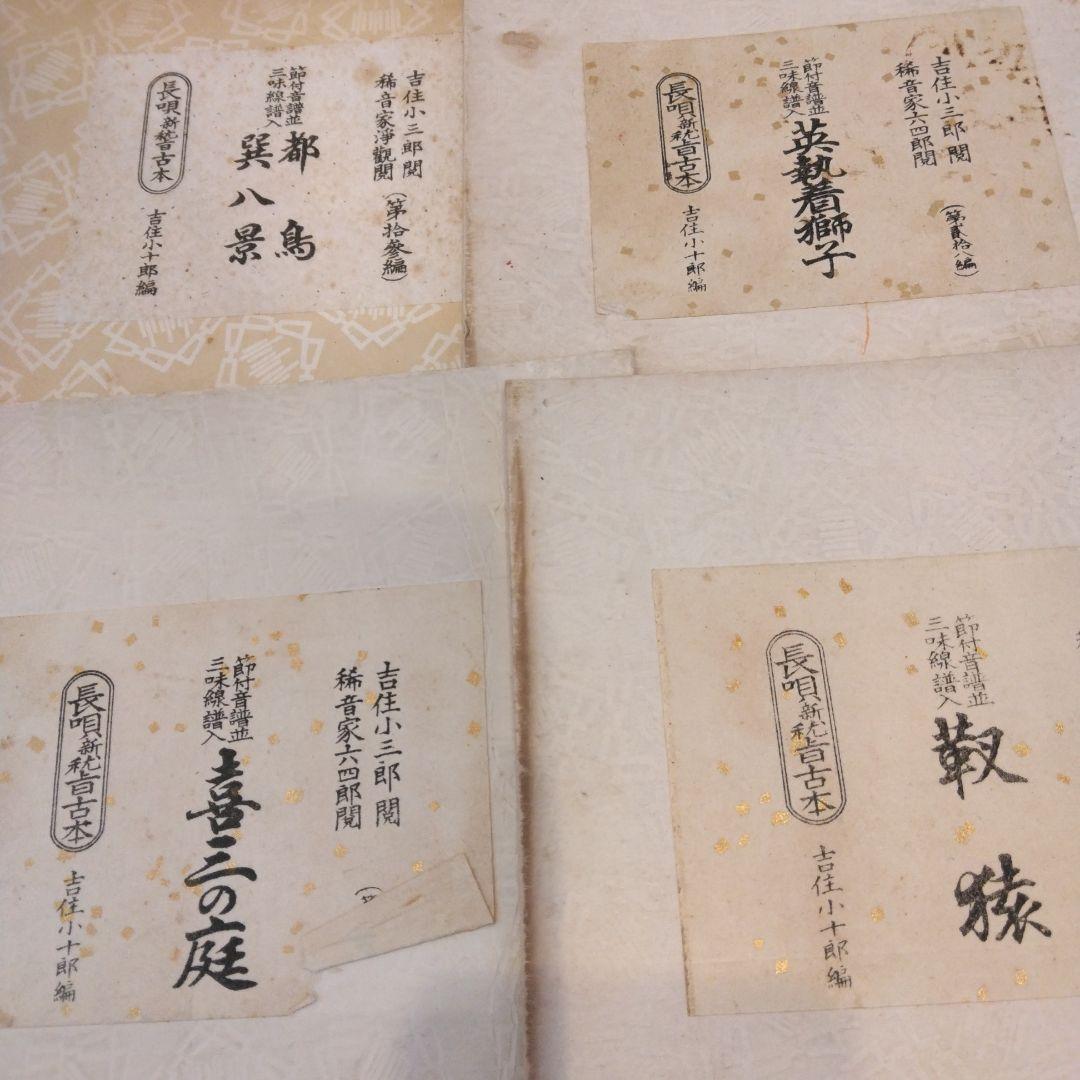 吉住小三郎閲
稀音家淨觀閲
(第拾參編)
節付音譜並
三味線譜入
都鳥
巽八景
長唄新稽古本
吉住小十郎編
吉住小三郎閲
稀音家六四郎閲
(第貳拾八編)
節付音譜並
三味線譜入
英執着獅子
長唄新稽古本
吉住小十郎編
吉住小三郎閲
稀音家六四郎閲
節付音譜並
三味線譜入
喜三の庭
長唄新稽古本
吉住小十郎編
節付音譜並
三味線譜入
靱猿
長唄新稽古本
吉住小十郎編